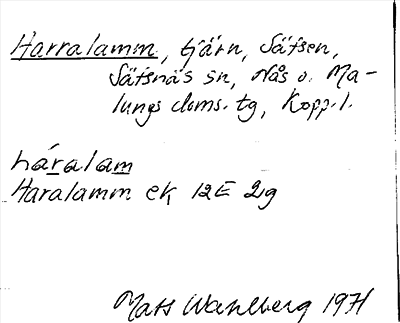 Harralamm, tjärn, Säfsen,
Säfsnäs sn, Nås o. Ma-
lungs doms. tg, Kopp. l.
háralam
Haralamm ek 12E 2g
Mats Wahlberg 1971